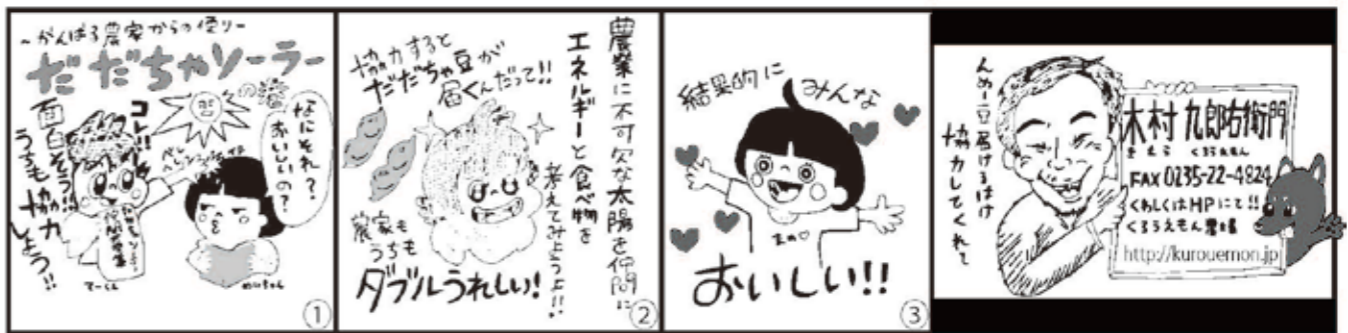 〜がんばる農家からの便り〜
だだちゃソーラー
の巻
コレ!!
面白そう!!
うちも協力
しよう!!
なにそれ?
おいしいの?
てーくん
①
協力すると
だだちゃ豆が
届くんだって!!
農業に不可欠な太陽を仲間に
エネルギーと食べ物を
考えてみようよ!!
農家も
うちも
ダブルうれしい!
②
結果的に
みんな
おいしい!!
③
んめー豆届けるはけ
協力してくれて
木村 九郎右衛門
きむら くろうえもん
FAX 0235-22-4824
くわしくはHPにて!!
くろうえもん農場
http://kurouemon.jp